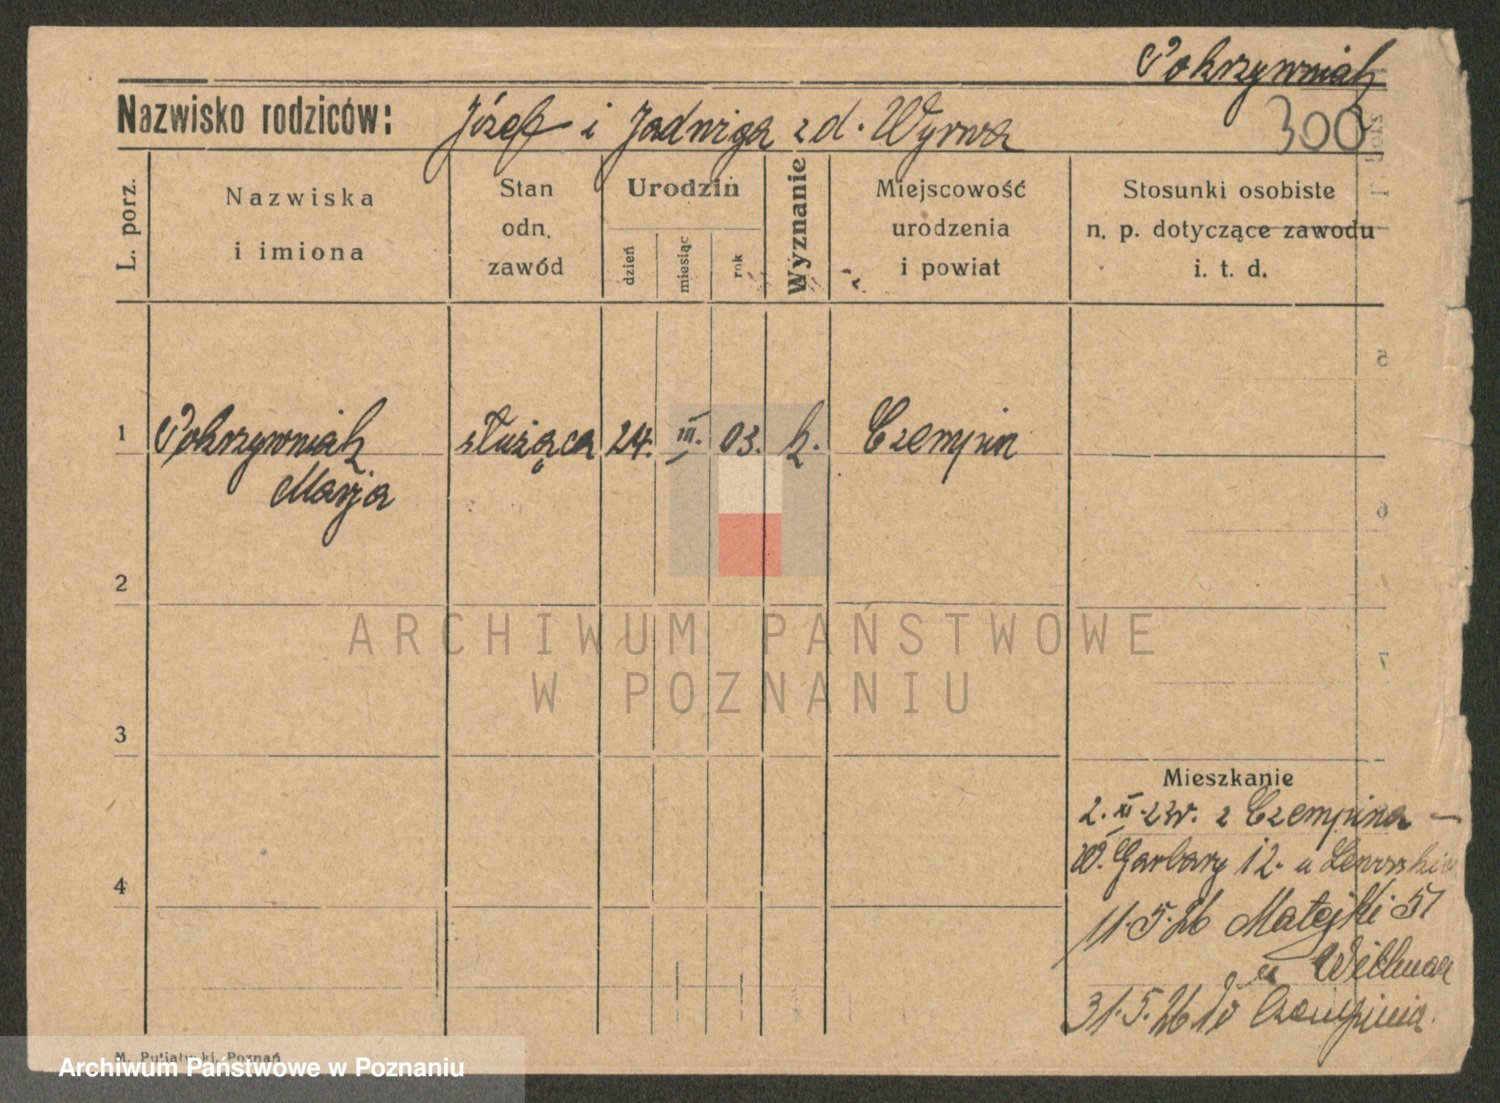 Pokrzywniak
Nazwisko rodziców: Józef i Jadwiga z d. Wyrwa 300
L. porz.
Nazwiska i imiona
Stan odn. zawód
Urodzin
dzień
miesiąc
rok
Wyznanie
Miejscowość urodzenia i powiat
Stosunki osobiste n. p. dotyczące zawodu i. t. d.
1 Pokrzywniak służąca 24. III. 03. k. Czempin
Marja
2
3
4
ARCHIWUM PAŃSTWOWE
W POZNANIU
Mieszkanie
2. XI. 23r. z Czempina —
W. Garbary 12. u
11.5.26 Matejki 51
u
31.5.26 do Czempinia.
M. Putiatycki, Poznań
Archiwum Państwowe w Poznaniu